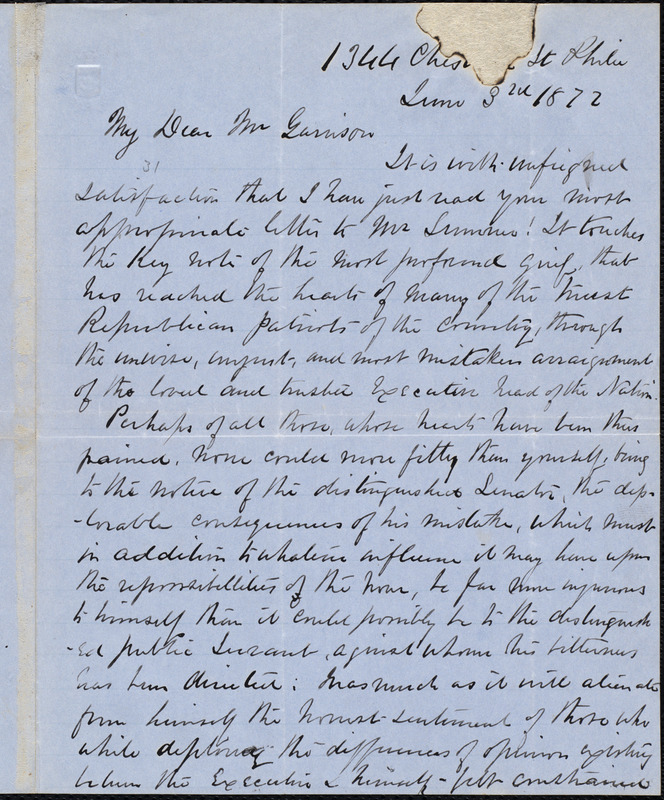 1344 Ches St Phila
June 3rd 1872
My Dear Mr Garrison
31
It is with unfeigned
satisfaction that I have just read your most
appropriate letter to Mr Sumner! It touches
the Key note of the most profound grief, that
has reached the hearts of many of the truest
Republican patriots of the Country, through
the unwise, unjust, and most mistaken arraignment
of the loved and trusted Executive head of the Nation.
Perhaps of all those, whose hearts have been thus
pained, none could more fitly than yourself, bring
to the notice of the distinguished Senator, the dep-
-lorable consequences of his mistake, which must
in addition to whatever influence it may have upon
the reponsibilities of the hour, be far more injurious
to himself than it could possibly be to the distinguish
-ed public Servant, against whom his bitterness
has been directed: Inasmuch as it will alienate
from himself the honest sentiment of those who
while deploring the differences of opinion existing
between the Executive & himself - felt constrained